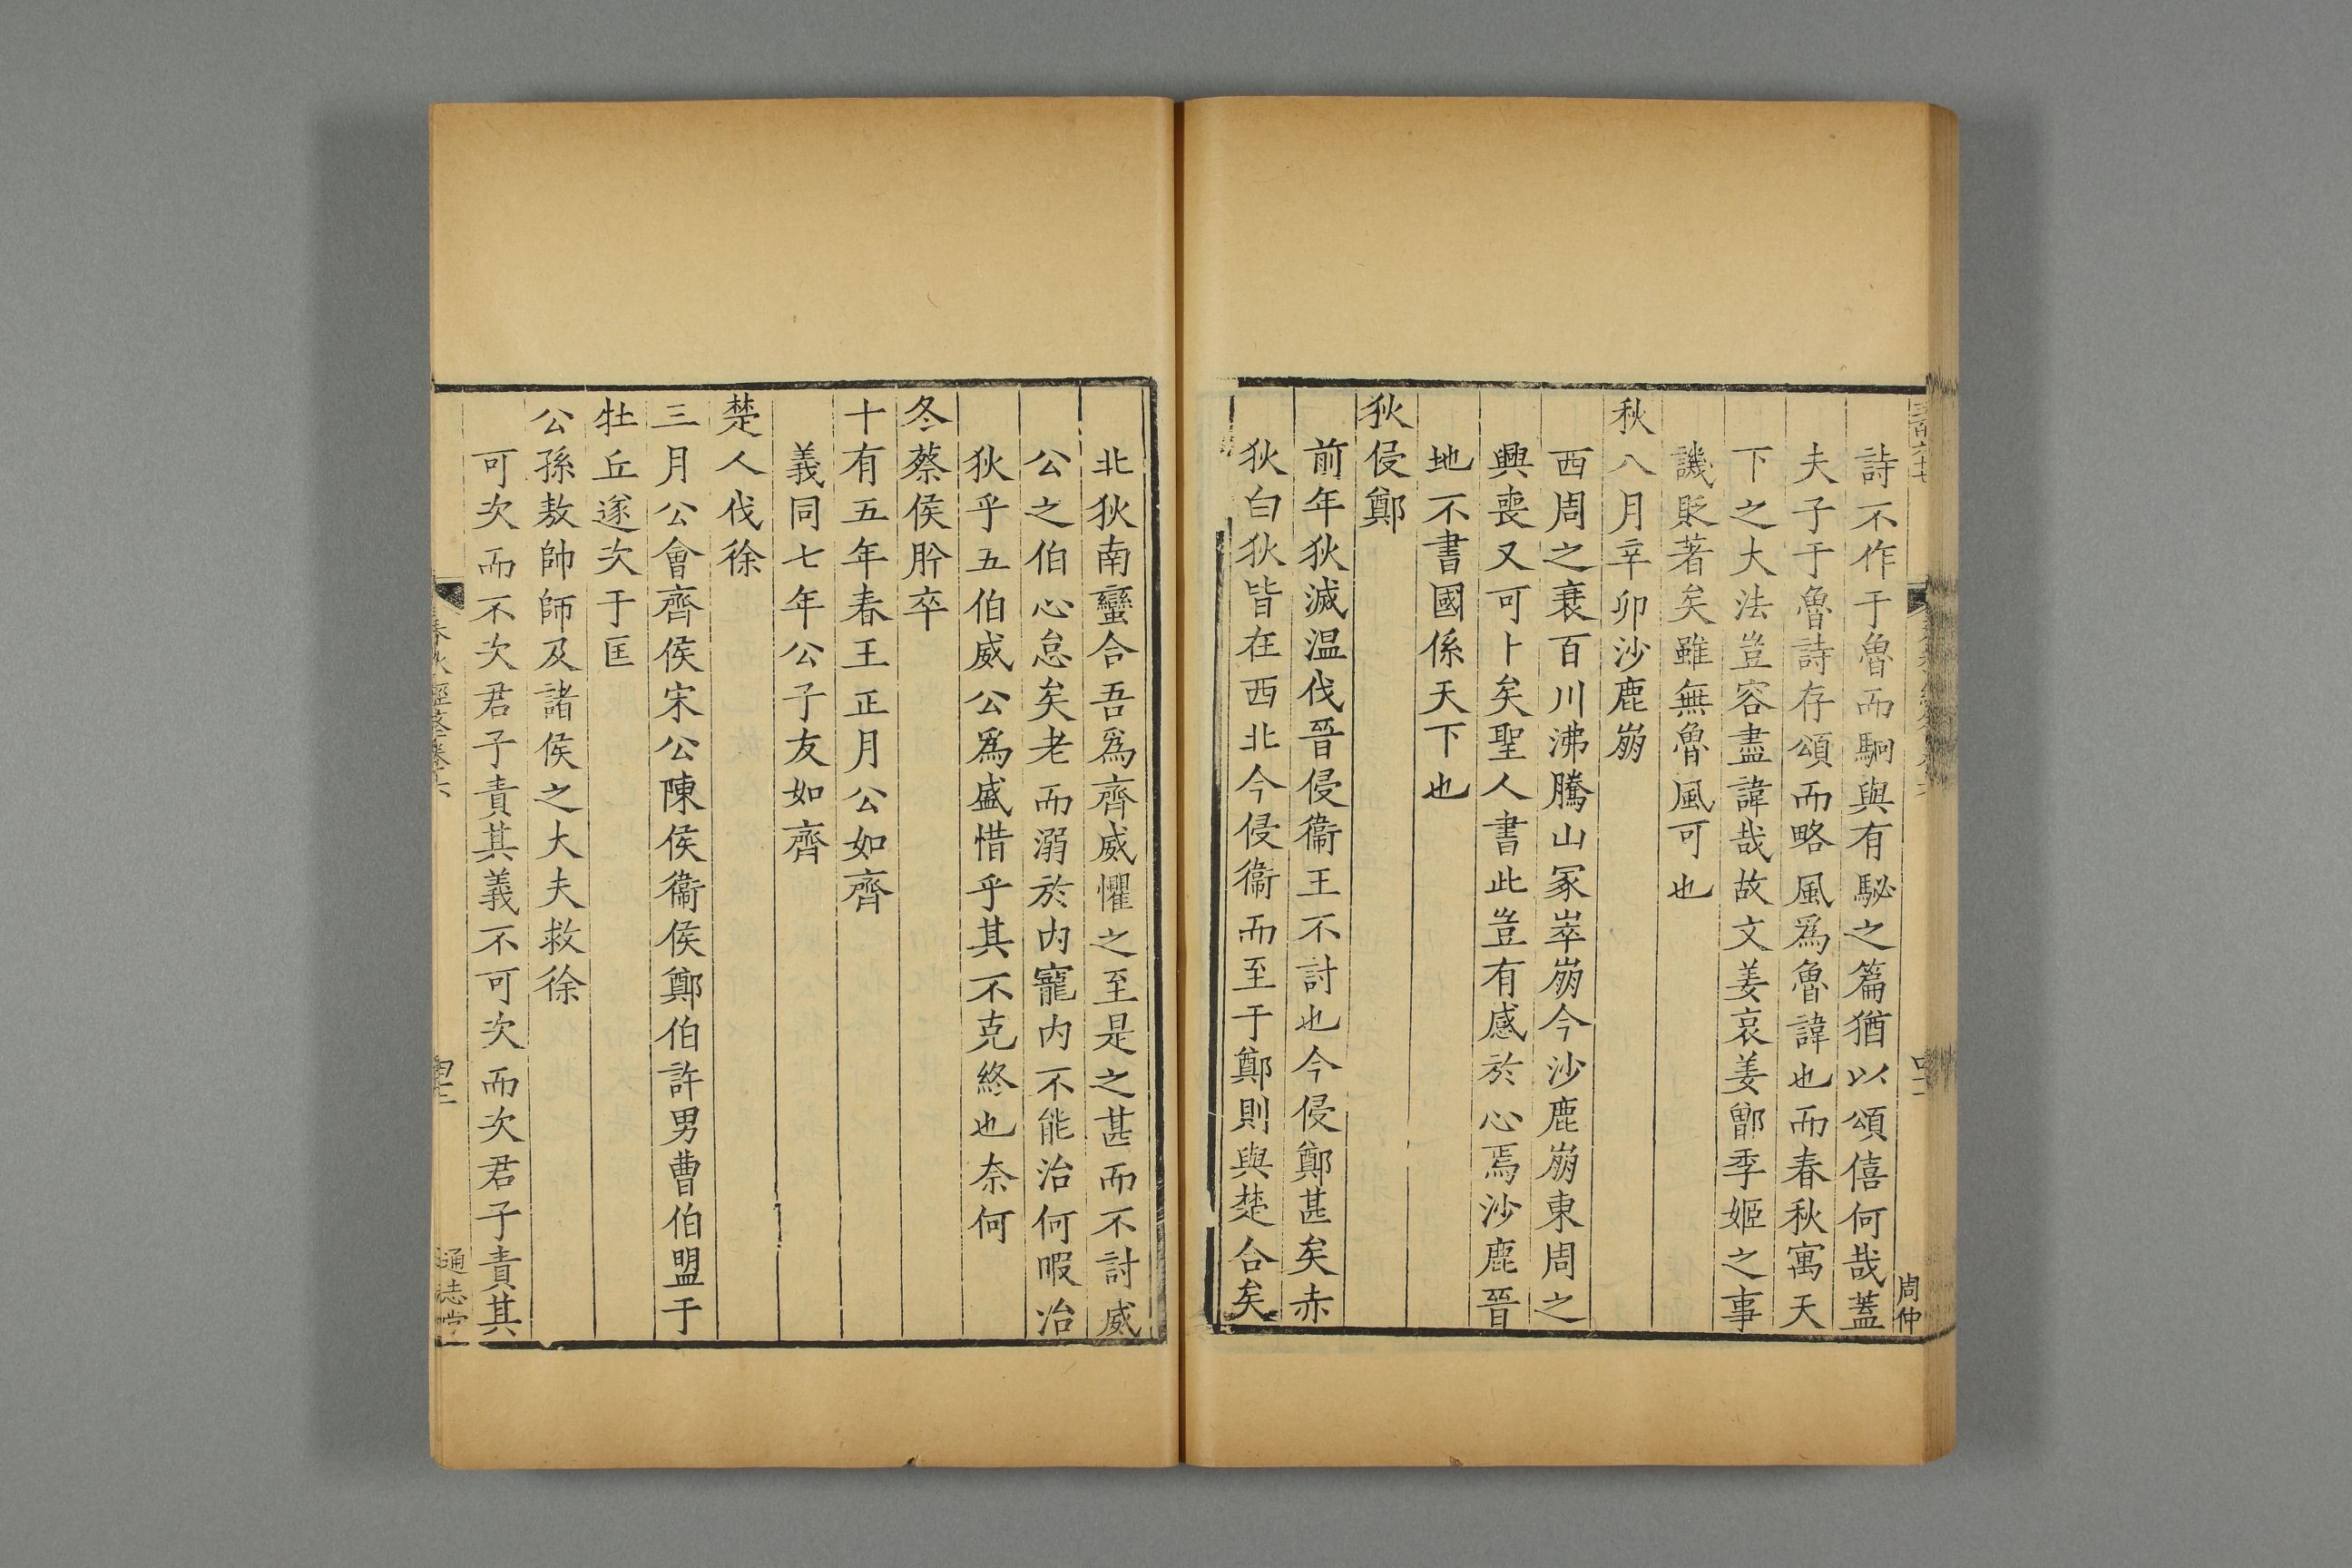 詩不作于魯而駉與有駜之篇猶以頌僖何哉蓋
夫子于魯詩存頌而略風爲魯諱也而春秋寓天
下之大法豈容盡諱哉故文姜哀姜鄫季姬之事
譏貶著矣雖無魯風可也
秋八月辛卯沙鹿崩
西周之衰百川沸騰山冢崒崩今沙鹿崩東周之
興喪又可卜矣聖人書此豈有感於心焉沙鹿晉
地不書國係天下也
狄侵鄭
前年狄滅温伐晉侵衞王不討也今侵鄭甚矣赤
狄白狄皆在西北今侵衞而至于鄭則與楚合矣
周仲
北狄南蠻合吾爲齊威懼之至是之甚而不討威
公之伯心怠矣老而溺於内寵内不能治何暇治
狄乎五伯威公爲盛惜乎其不克終也奈何
冬蔡侯肸卒
十有五年春王正月公如齊
義同七年公子友如齊
楚人伐徐
三月公會齊侯宋公陳侯衞侯鄭伯許男曹伯盟于
牡丘遂次于匡
公孫敖帥師及諸侯之大夫救徐
可次而不次君子責其義不可次而次君子責其
通志堂